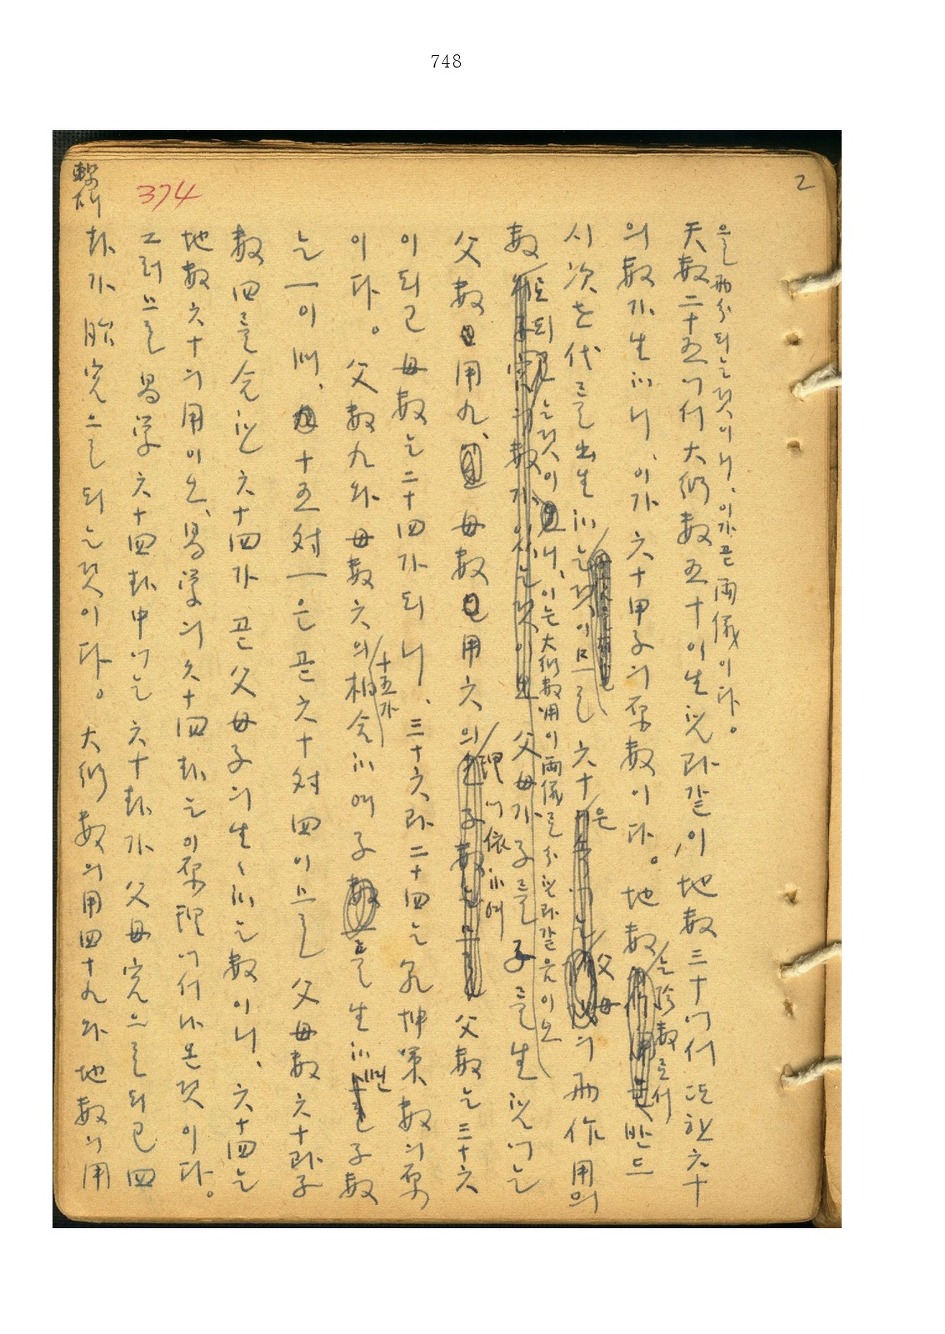 748
2
374
으로 兩分되는것이니, 이가 곧 兩儀이다.
天數二十五에서 大衍數五十이 生함과 같이, 地數三十에서 또한 六十
의 數가 生하니, 이가 六十甲子의 原數이다. 地數는 陰數로서 반드
시 次世代를 出生하는것이므로 六十은 父母의 兩作用의
數로 되는것이니, 이는 大衍數用이 兩儀로 分함과 같음이오
父母가 子를 生함에는
父數 用九, 母數 用六의 理에 依하여 父數는 三十六
이 되고 母數는 二十四가 되니, 三十六과 二十四는 乾坤策數의 原
이다. 父數九와 母數六의 相合 十五가 하여 子를 生하면 子數
는 一이며, 十五対一은 곧 六十対四이므로 父母數六十과 子
數四를 合한 六十四가 곧 父母子의 生生하는 數이니, 六十四는
地數六十의 用이오, 易學의 六十四卦는 이 原理에서 나온것이다.
그러므로 易學六十四卦中에는 六十卦가 父母宮으로 되고 四
卦가 胎宮으로 되는것이다. 大衍數의 用四十九와 地數의 用